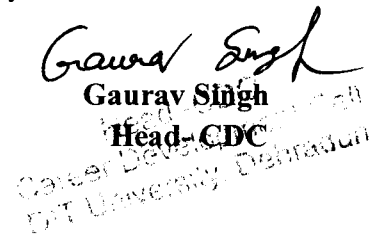 Gaurav Singh
Gaurav Singh
Head- CDC
Head- CDC
Career Development Cell
DIT University, Dehradun